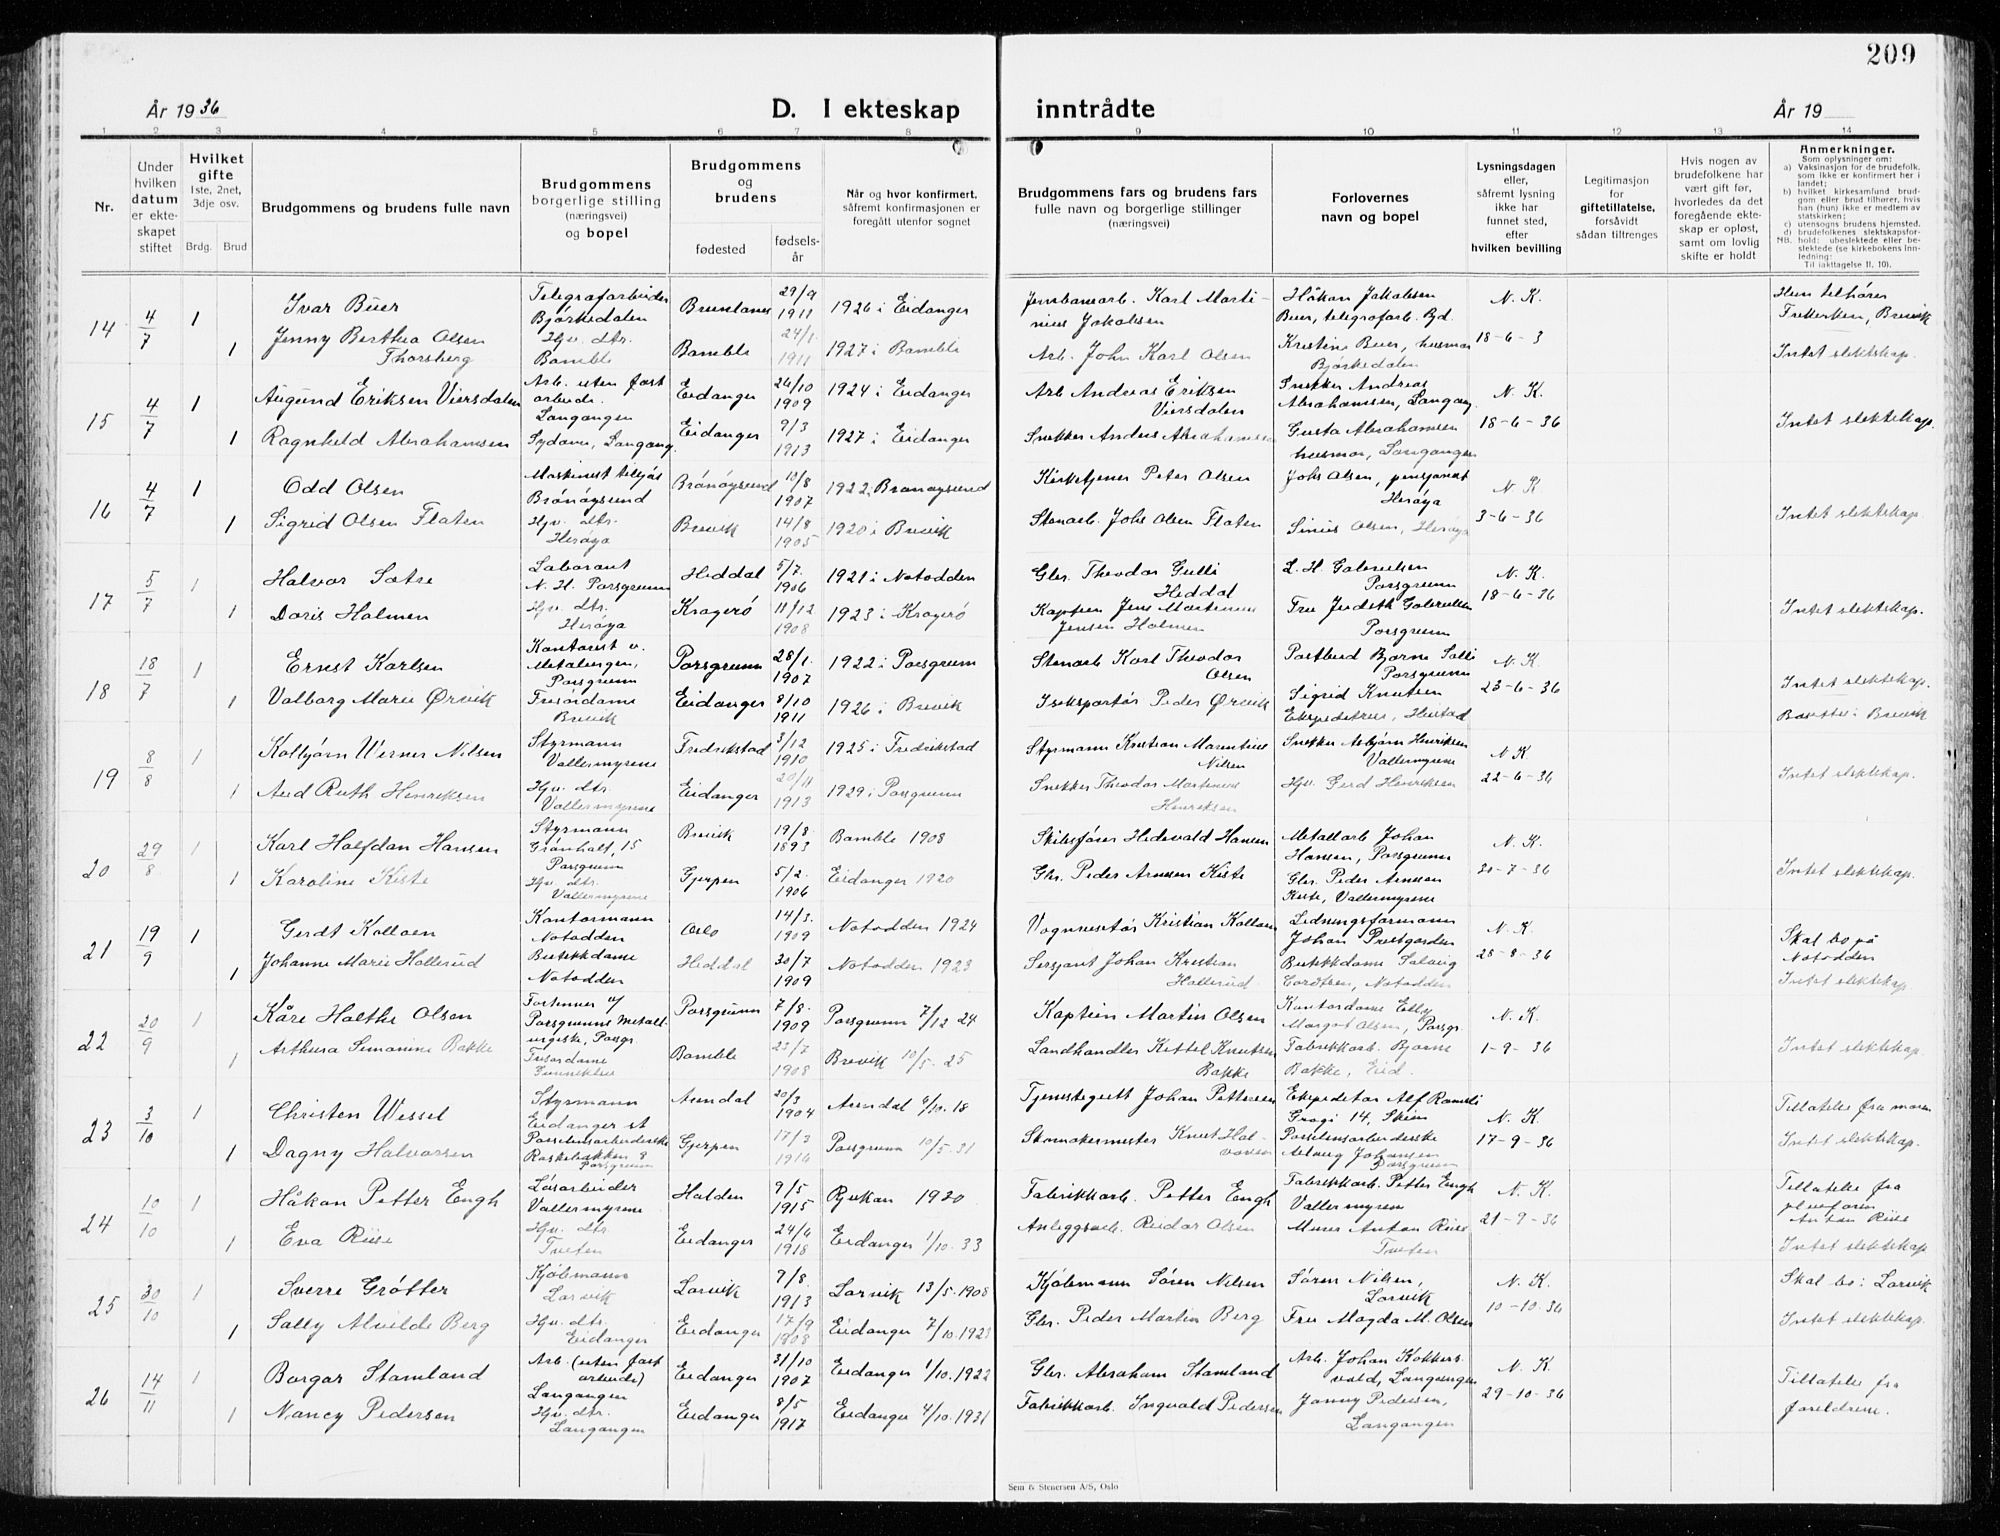 209
År 1936
D. I ekteskap inntrådte
År 19
1 2 3 4 5 6 7 8 9 10 11 12 13 14
Nr.
Under hvilken datum er ekteskapet stiftet
Hvilket gifte
1ste, 2net, 3dje osv.
Brdg. Brud
Brudgommens og brudens fulle navn
Brudgommens borgerlige stilling (næringsvei) og bopel
Brudgommens og brudens
fødested
fødselsår
Når og hvor konfirmert, såfremt konfirmasjonen er foregått utenfor sognet
Brudgommens fars og brudens fars fulle navn og borgerlige stillinger (næringsvei)
Forlovernes navn og bopel
Lysningsdagen eller, såfremt lysning ikke har funnet sted, efter hvilken bevilling
Legitimasjon for giftetillatelse, forsåvidt sådan tiltrenges
Hvis nogen av brudefolkene har vært gift før, hvorledes da det foregående ekteskap er opløst, samt om lovlig skifte er holdt
Anmerkninger.
Som oplysninger om:
a) Vaksinasjon for de brudefolk, som ikke er konfirmert her i landet;
b) hvilket kirkesamfund brudgom eller brud tilhører, hvis han (hun) ikke er medlem av statskirken;
c) utensogns brudens hjemsted.
d) brudefolkenes slektskapsforhold: ubeslektede eller beslektede (se kirkebokens Innledning:
NB. Til iakttagelse II, 10).
14 4/7 1 Ivar Buer Telegrafarbeider Bjørkedalen Brunlanes 29/9 1911 1926 i Eidanger Jernbanearb. Karl Martinius Jakobsen Håkon Jakobsen Buer, telegrafarb. Bjd. N. K. 18-6-3 Hun tilhører Frikirken, Brevik
1 Jenny Berthea Olsen Thorsberg Hjv. dtr. Bamble Bamble 24/1 1911 1927 i Bamble Arb. John Karl Olsen Kristine Buer, husmor Bjørkedalen Intet slektskap.
15 4/7 1 Augund Eriksen Viersdalen Arb. uten fast arbeide. Langangen Eidanger 26/10 1909 1924 i Eidanger Arb. Andreas Eriksen Viersdalen Snekker Andreas Abrahamsen, Langang. N. K. 18-6-36
1 Ragnhild Abrahamsen Sydame, Langang. Eidanger 9/3 1913 1927 i Eidanger Snekker Anders Abrahamsen Gusta Abrahamsen husmor, Langangen Intet slektskap.
16 4/7 1 Odd Olsen Maskinist Brønøysund Brønøysund 10/8 1907 1922 i Brønøysund Kirketjener Peter Olsen Johs Olsen, pensjonist Herøya N. K. 3-6-36
1 Sigrid Olsen Flaten Hjv. dtr. Herøya Brevik 14/8 1905 1920 i Brevik Stenarb. Johs Olsen Flaten Olsen, Herøya Intet slektskap.
17 5/7 1 Halvor Sætre Laborant N. H. Porsgrunn Heddal 5/7 1906 1921 i Notodden Gbr. Theodor Gulli Heddal L. H. Gabrielsen Porsgrunn N. K. 18-6-36
1 Doris Holmen Hjv. dtr. Herøya Kragerø 11/12 1908 1923 i Kragerø Kaptein Jens Martinius Jensen Holmen Fru Judith Gabrielsen Porsgrunn Intet slektskap.
18 18/7 1 Ernst Karlsen Kontorist v. Metalurgen, Porsgrunn Porsgrunn 28/1 1907 1922 i Porsgrunn Stenarb Karl Theodor Olsen Postbud Bjarne Solli Porsgrunn N. K. 23-6-36
1 Valborg Marie Ørvik Frisørdame Brevik Eidanger 8/10 1911 1926 i Brevik Iseksportør Peder Ørvik Sigrid Knutsen Ekspeditrise, Heistad Intet slektskap. Bosatte i Brevik
19 8/8 1 Kolbjørn Werner Nilsen Styrmann Vallermyrene Fredrikstad 3/12 1910 1925 i Fredrikstad Styrmann Kristian Marentius Nilsen Snekker Asbjørn Henriksen Vallermyrene N. K. 22-6-36
1 Aud Ruth Henriksen Hjv. dtr. Vallermyrene Eidanger 20/11 1913 1929 i Porsgrunn Snekker Theodor Martinius Henriksen Hjv. Gerd Henriksen Intet slektskap.
20 29/8 1 Karl Halfdan Hansen Styrmann Grønholt, 15 Porsgrunn Brevik 19/8 1893 Bamble 1908 Skibsfører Hedevald Hansen Metallarb Johan Hansen, Porsgrunn N. K. 20-7-36
1 Karoline Kiste Hjv. dtr. Vallermyrene Gjerpen 5/2 1906 Eidanger 1920 Gbr. Peder Arnesen Kiste Gbr. Peder Arnesen Kiste, Vallermyrene Intet slektskap.
21 19/9 1 Gerdt Kolloen Kontormann Notodden Oslo 14/3 1909 Notodden 1924 Vognvisitør Kristian Kolloen Ledningsformann Johan Prestgarden N. K. 28-8-36 Skal bo på Notodden
1 Johanne Marie Hollerud Butikkdame Notodden Heddal 30/7 1909 Notodden 1923 Sersjant Johan Kristian Hollerud Butikkdame Solveig Cordtsen, Notodden Intet slektskap.
22 20/9 1 Kåre Holthe Olsen Fortinner v/ Porsgrunns Metallurgiske, Porsgr Porsgrunn 7/8 1909 Porsgrunn 7/12 24 Kaptein Martin Olsen Kontordame Elly Margot Olsen, Porsgr. N. K. 1-9-36
1 Arthura Simonine Bakke Frisørdame Bamble 23/7 1908 Brevik 10/5 25 Landhandler Kittel Knutsen Bakke Fabrikkarb. Bjarne Bakke, Eid. Intet slektskap.
23 3/10 1 Christen Wessel Styrmann Eidanger st Arendal 20/3 1904 Arendal 6/10. 18 Tjenestegutt Johan Pettersen Ekspeditør Alf Gragi 14, Skien N. K. 17-9-36 Tillatelse fra moren
1 Dagny Halvorsen Porselensarbeiderske Raskebakken 8 Porsgrunn Gjerpen 17/3 1916 Porsgrunn 10/5. 31 Skomakermester Knut Halvorsen Porselensarbeiderske Aslaug Johansen Porsgrunn Intet slektskap.
24 10/10 1 Håkon Petter Engh Løsarbeider Vallermyrene Halden 9/5 1915 Rjukan 1930 Fabrikkarb. Petter Engh Fabrikkarb. Petter Engh Vallermyren N. K. 21-9-36 Tillatelse fra pleiefaren Anton Riise
1 Eva Riise Hjv. dtr. Tveten Eidanger 24/6 1918 Eidanger 1/10. 33 Anleggsarb. Reidar Olsen Murer Anton Riise Tveten Intet slektskap
25 30/10 1 Sverre Grøtter Kjøbmann Larvik Larvik 9/8 1913 Larvik 13/5. 1908 Kjøbmann Søren Nilsen Søren Nilsen, Larvik N. K. 10-10-36 Skal bo i Larvik
1 Sally Alvilde Berg Hjv. dtr. Eidanger Eidanger 17/9 1808 Eidanger 7/10. 1923 Gbr. Peder Martin Berg Fru Magda M. Olsen Intet slektskap.
26 14/11 1 Borgar Stamland Arb. (uten fast arbeide) Langangen Eidanger 31/10 1907 Eidanger 1/10. 1922 Gbr. Abraham Stamland Arb. Johan Kokkersvold, Langangen N. K. 29-10-36 Tillatelse fra foreldrene.
1 Nancy Pedersen Hjv. dtr. Langangen Eidanger 8/5 1917 Eidanger 4/10. 1931 Fabrikkarb. Ingvald Pedersen Jenny Pedersen, Langangen
Sem & Stenersen A/S, Oslo